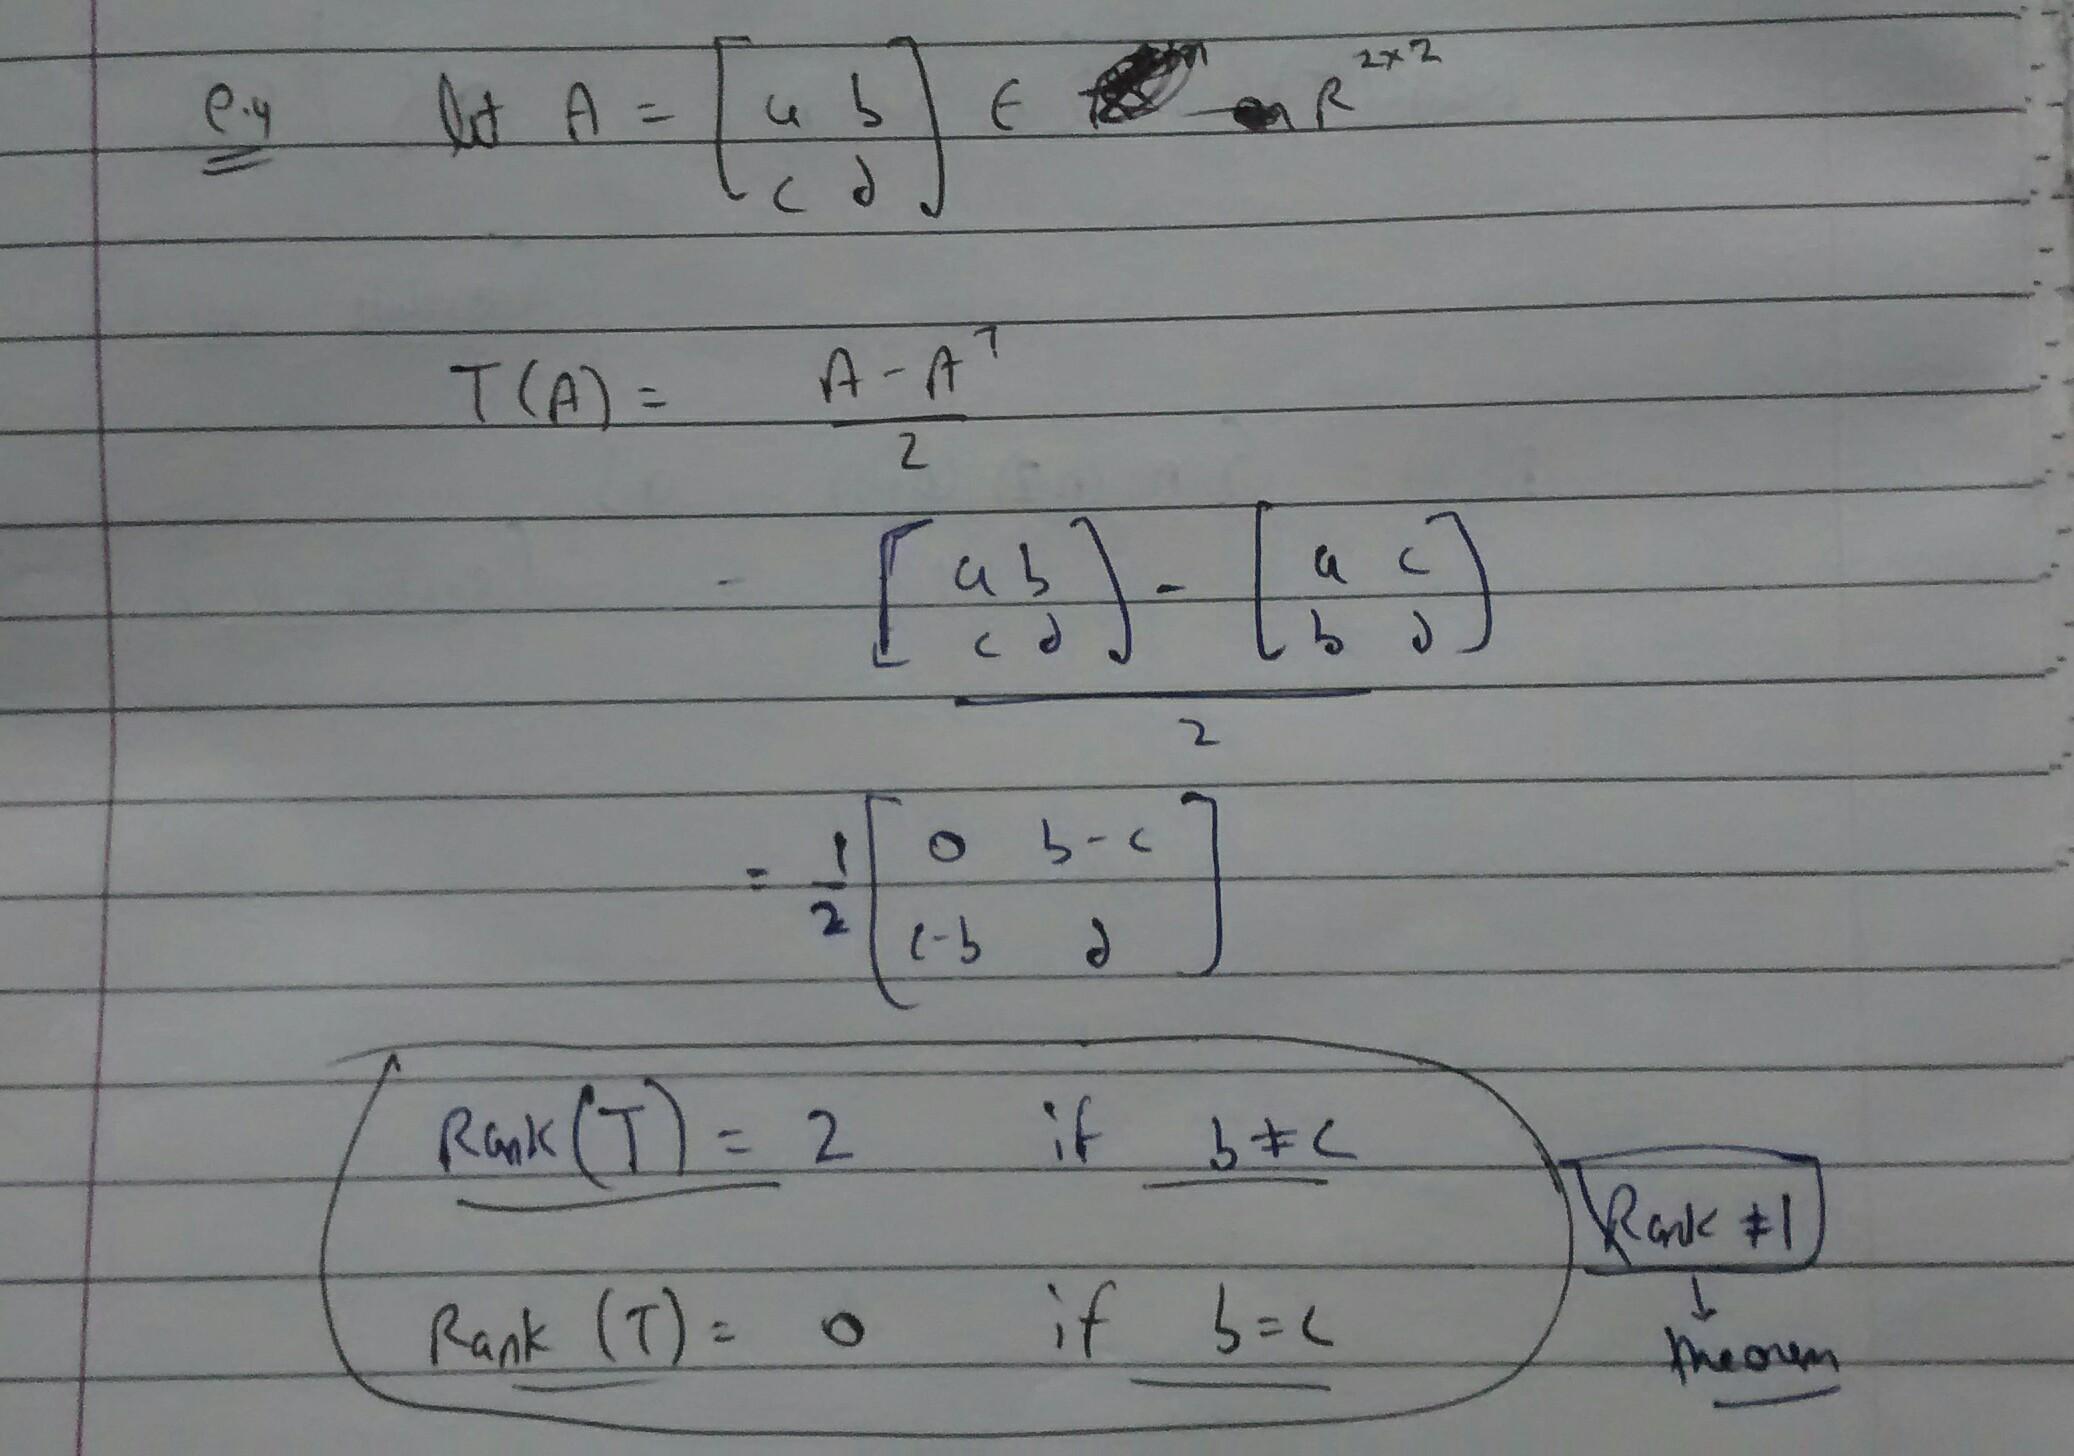 e.g let A = [ a b ; c d ] ∈ R^{2×2}
T(A) = (A - A^T) / 2
= ([ a b ; c d ] - [ a c ; b d ]) / 2
= 1/2 [ 0 b-c ; c-b d ]
Rank(T) = 2 if b ≠ c
Rank ≠ 1
Rank (T) = 0 if b = c
↓
theorem